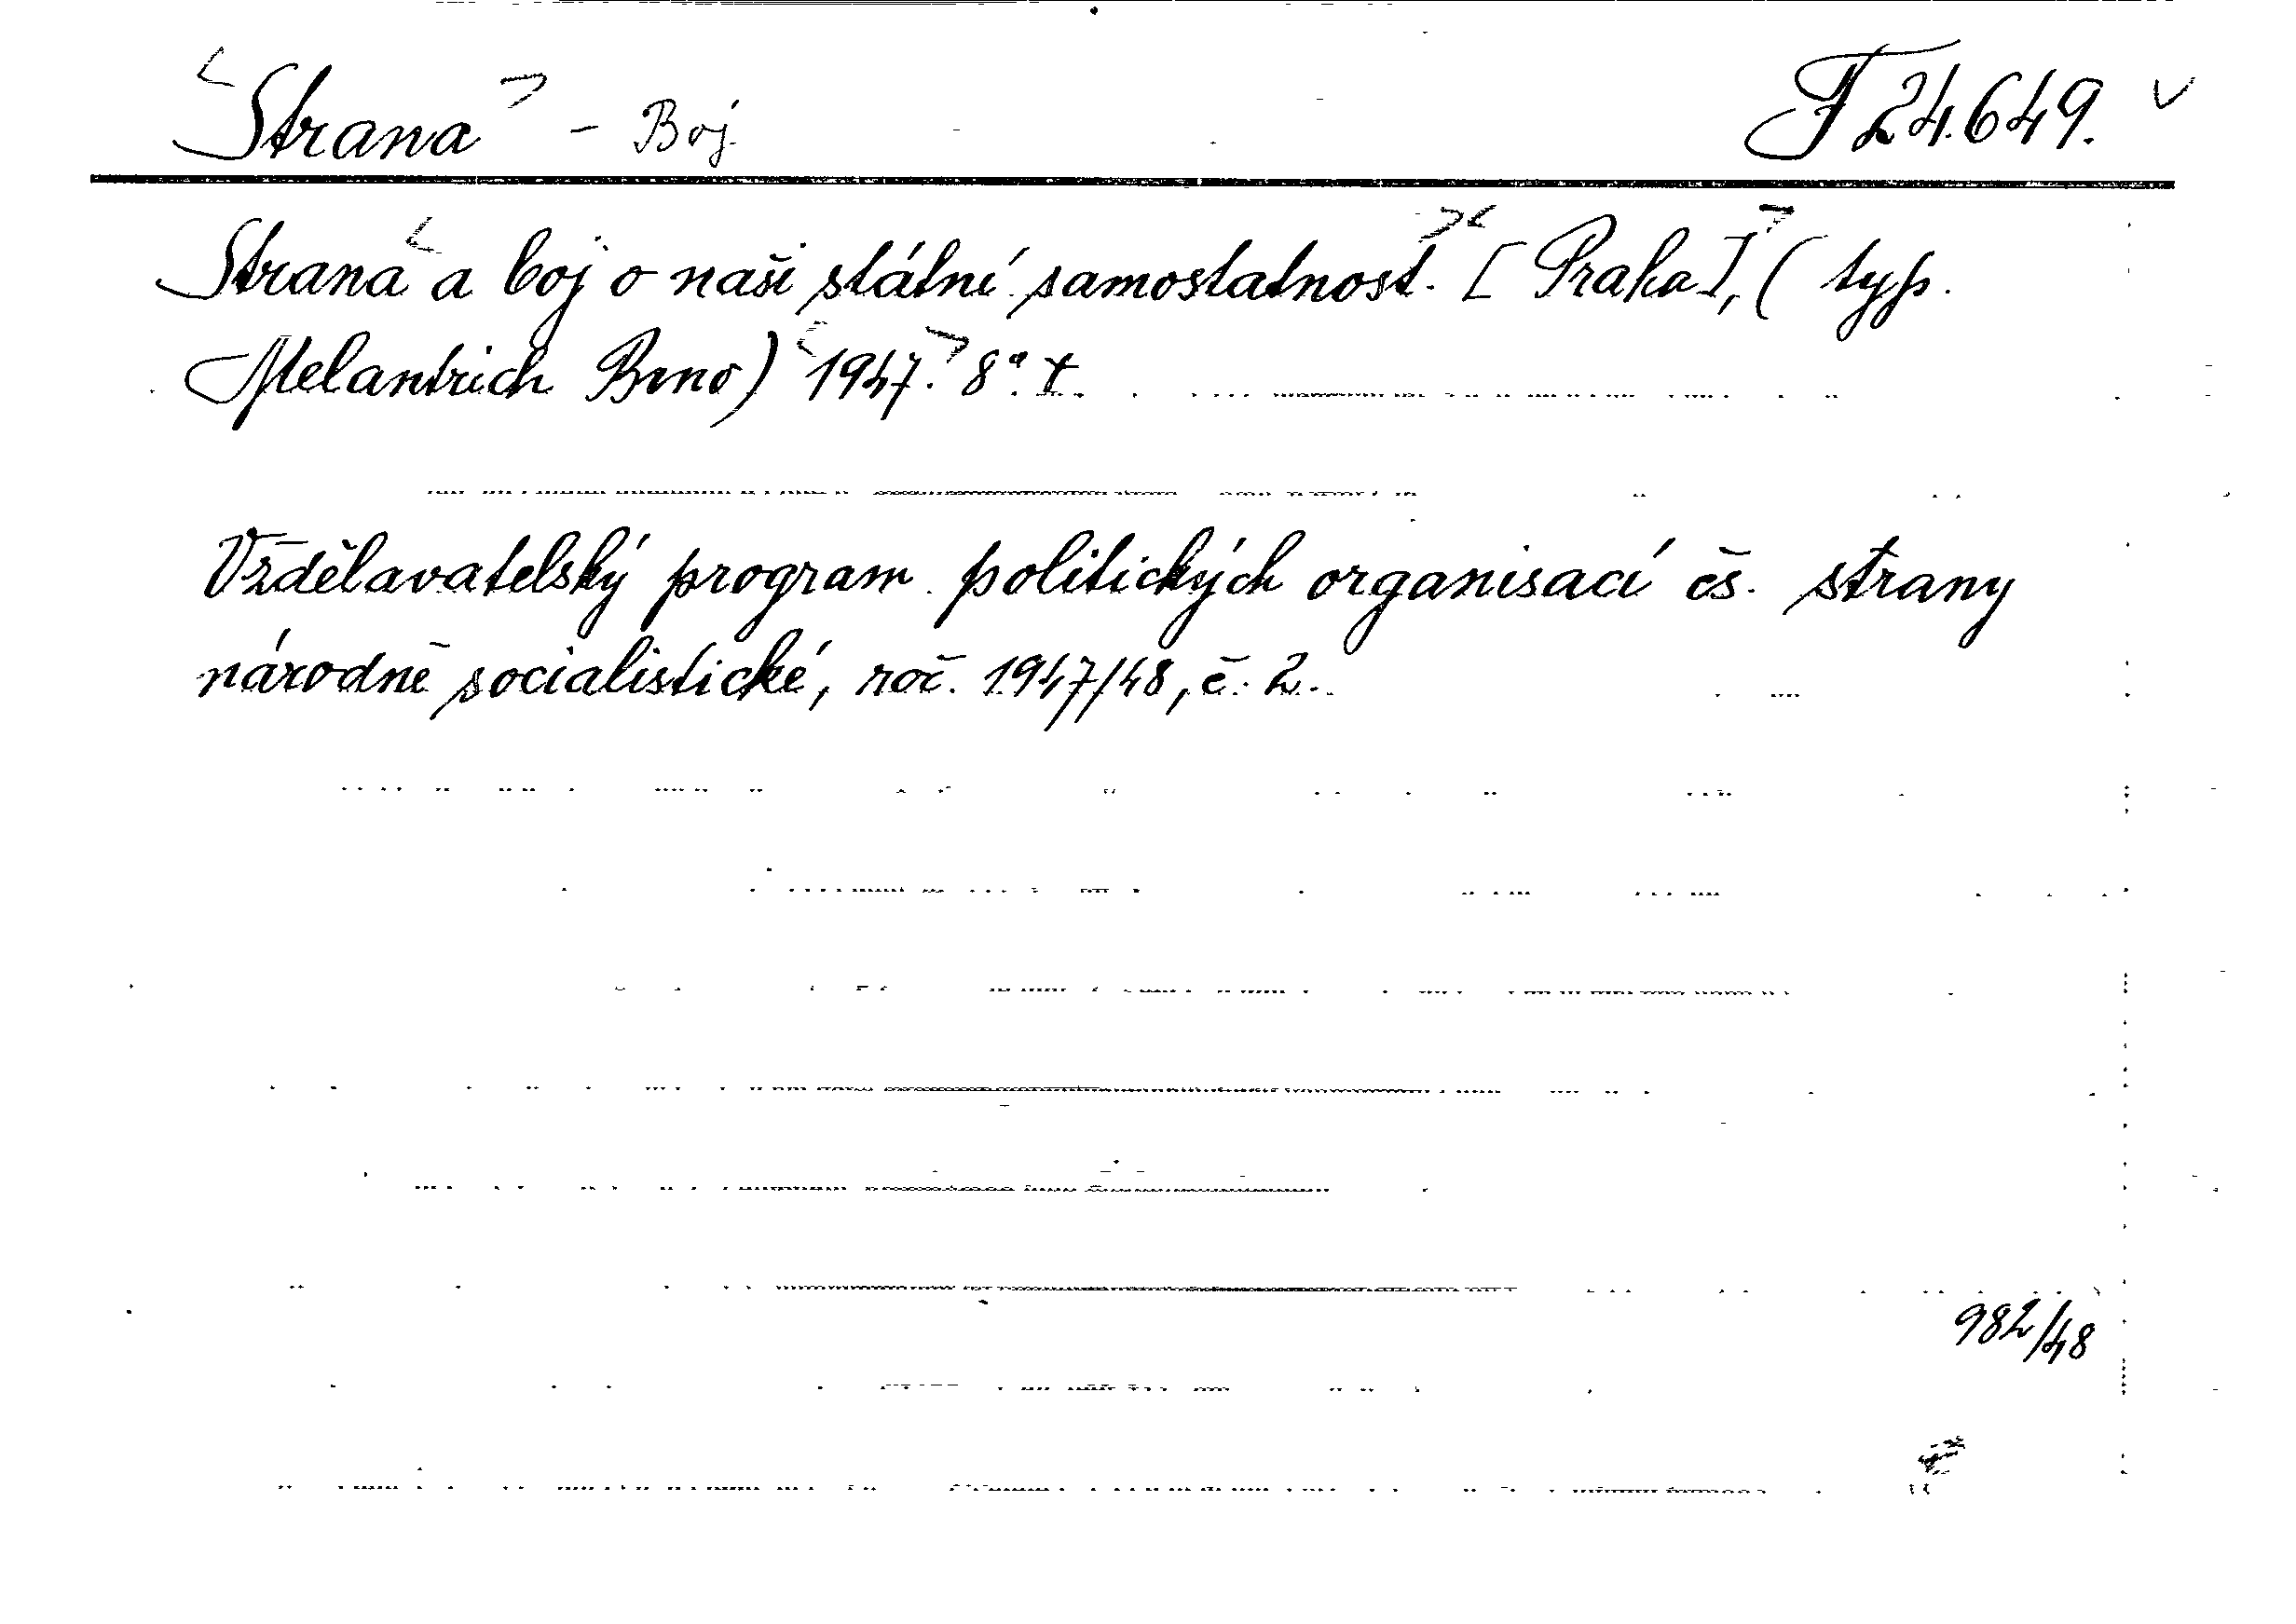 Strana - Boj F 24.649.
Strana a boj o naši státní samostatnost. [Praha], (typ.
Melantrich Brno) 1947. 8°.
Vzdělavatelský program politických organisací čs. strany
národně socialistické, roč. 1947/48, č. 2.
982/48